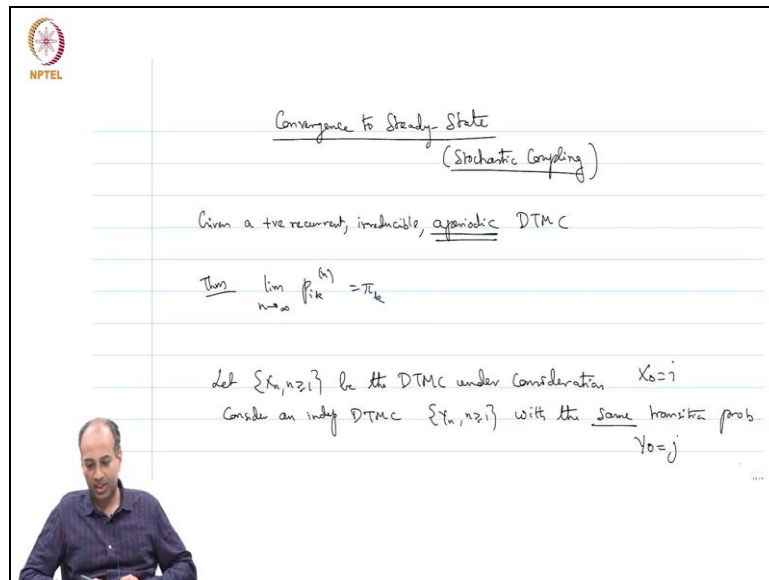 NPTEL
Convergence to Steady-State
(Stochastic Coupling)
Given a +ve recurrent, irreducible, aperiodic DTMC
Thm lim n→∞ p_{ik}^{(n)} = π_k
Let {X_n, n≥1} be the DTMC under consideration X_0=i
Consider an indep DTMC {Y_n, n≥1} with the same transition prob.
Y_0=j